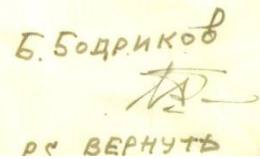 Б. БОДРИКОВ
PS ВЕРНУТЬ